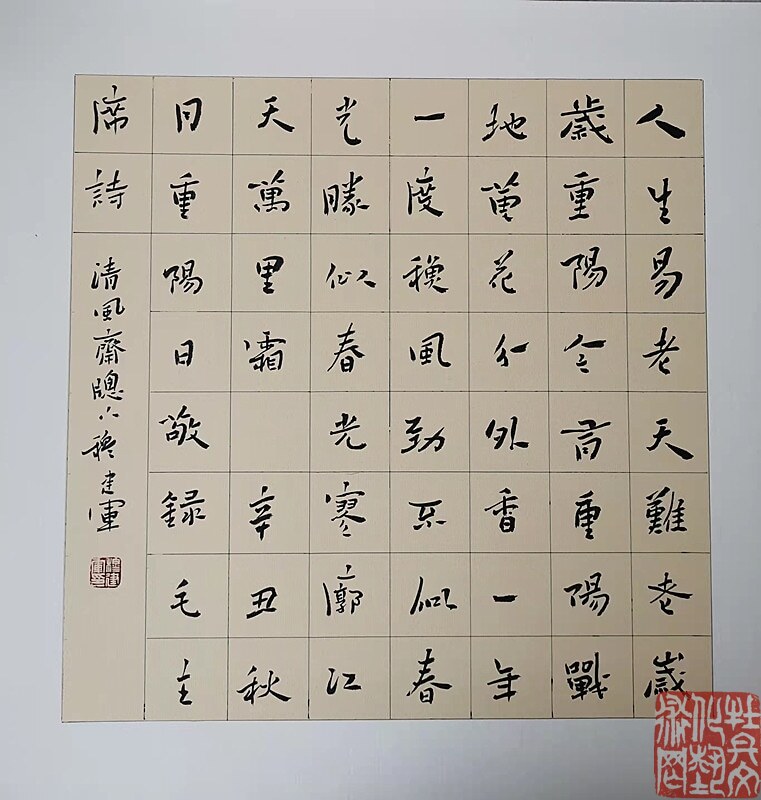 人生易老天難老歲
歲重陽今重陽戰
地黃花分外香一年
一度穐風勁不似春
光勝似春光寥廓江
天萬里霜 辛丑秋
月重陽日敬録毛主
席詩
清風齋牕下穆建軍